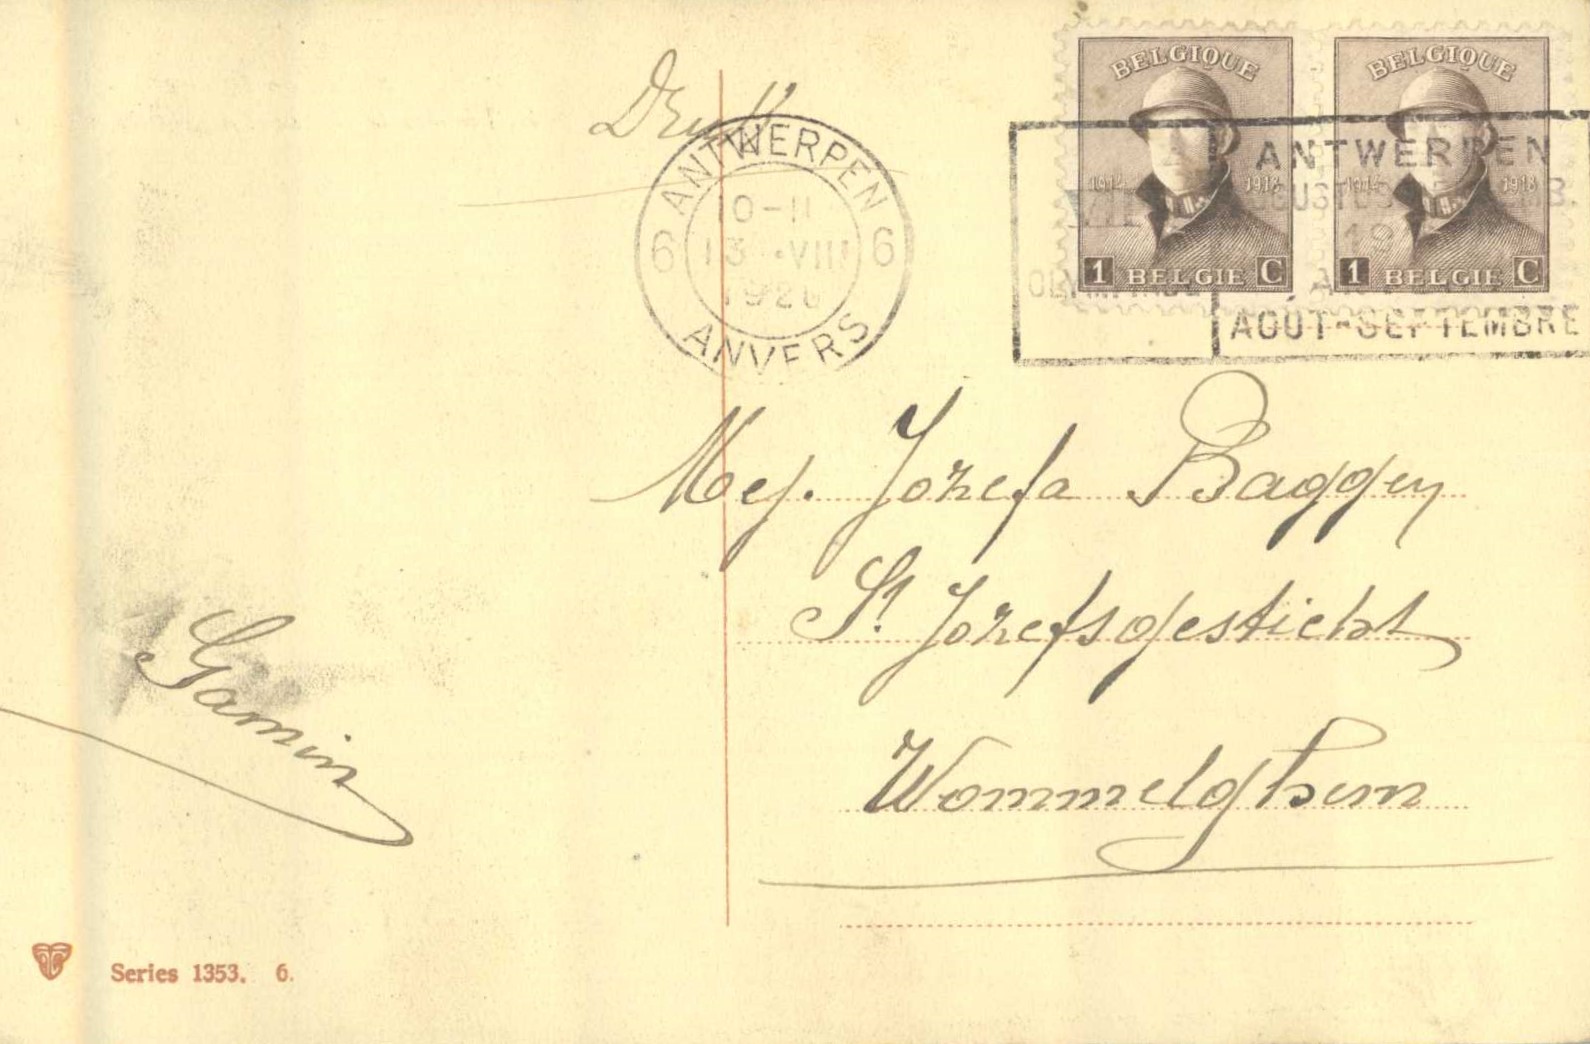 BELGIQUE BELGIQUE
1914 1918 1914 1918
1 BELGIE C 1 BELGIE C
ANTWERPEN
6 10-11 6
13 · VIII
1920
ANVERS
VII
ANTWERPEN
1920
AOUT-SEPTEMBRE
Mej. Jozefa Baggen
St Jozefsgesticht
Wommelghem
Gamin
Series 1353. 6.